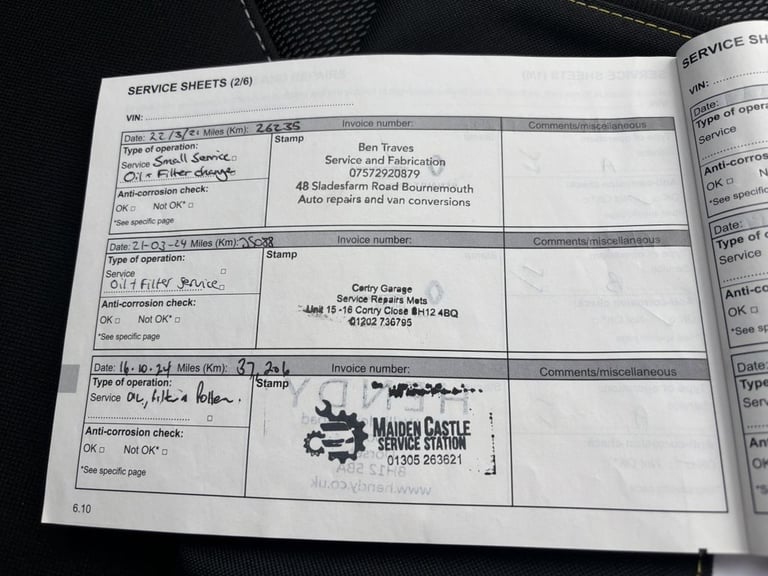 SERVICE SHEETS (2/6)
VIN:
Date: 22/3/21 Miles (Km): 26235 Invoice number: Comments/miscellaneous
Type of operation:
Service Small Service
Oil + Filter change
Anti-corrosion check:
OK Not OK*
*See specific page
Stamp
Ben Traves
Service and Fabrication
07572920879
48 Sladesfarm Road Bournemouth
Auto repairs and van conversions
Date: 21-03-24 Miles (Km): 35088 Invoice number: Comments/miscellaneous
Type of operation:
Service
Oil + Filter Service
Anti-corrosion check:
OK Not OK*
*See specific page
Stamp
Cortry Garage
Service Repairs Mots
Unit 15 -16 Cortry Close BH12 4BQ
01202 736795
Date: 16.10.24 Miles (Km): 37,206 Invoice number: Comments/miscellaneous
Type of operation:
Service Oil, Pollen.
Anti-corrosion check:
OK Not OK*
*See specific page
Stamp
MAIDEN CASTLE
SERVICE STATION
01305 263621
6.10
SERVICE SH
VIN:
Date:
Type of opera
Service
Anti-corros
OK
*See specific
Date:
Type of o
Service
Anti-co
OK
*See sp
Date:
Type
Serv
An
OK